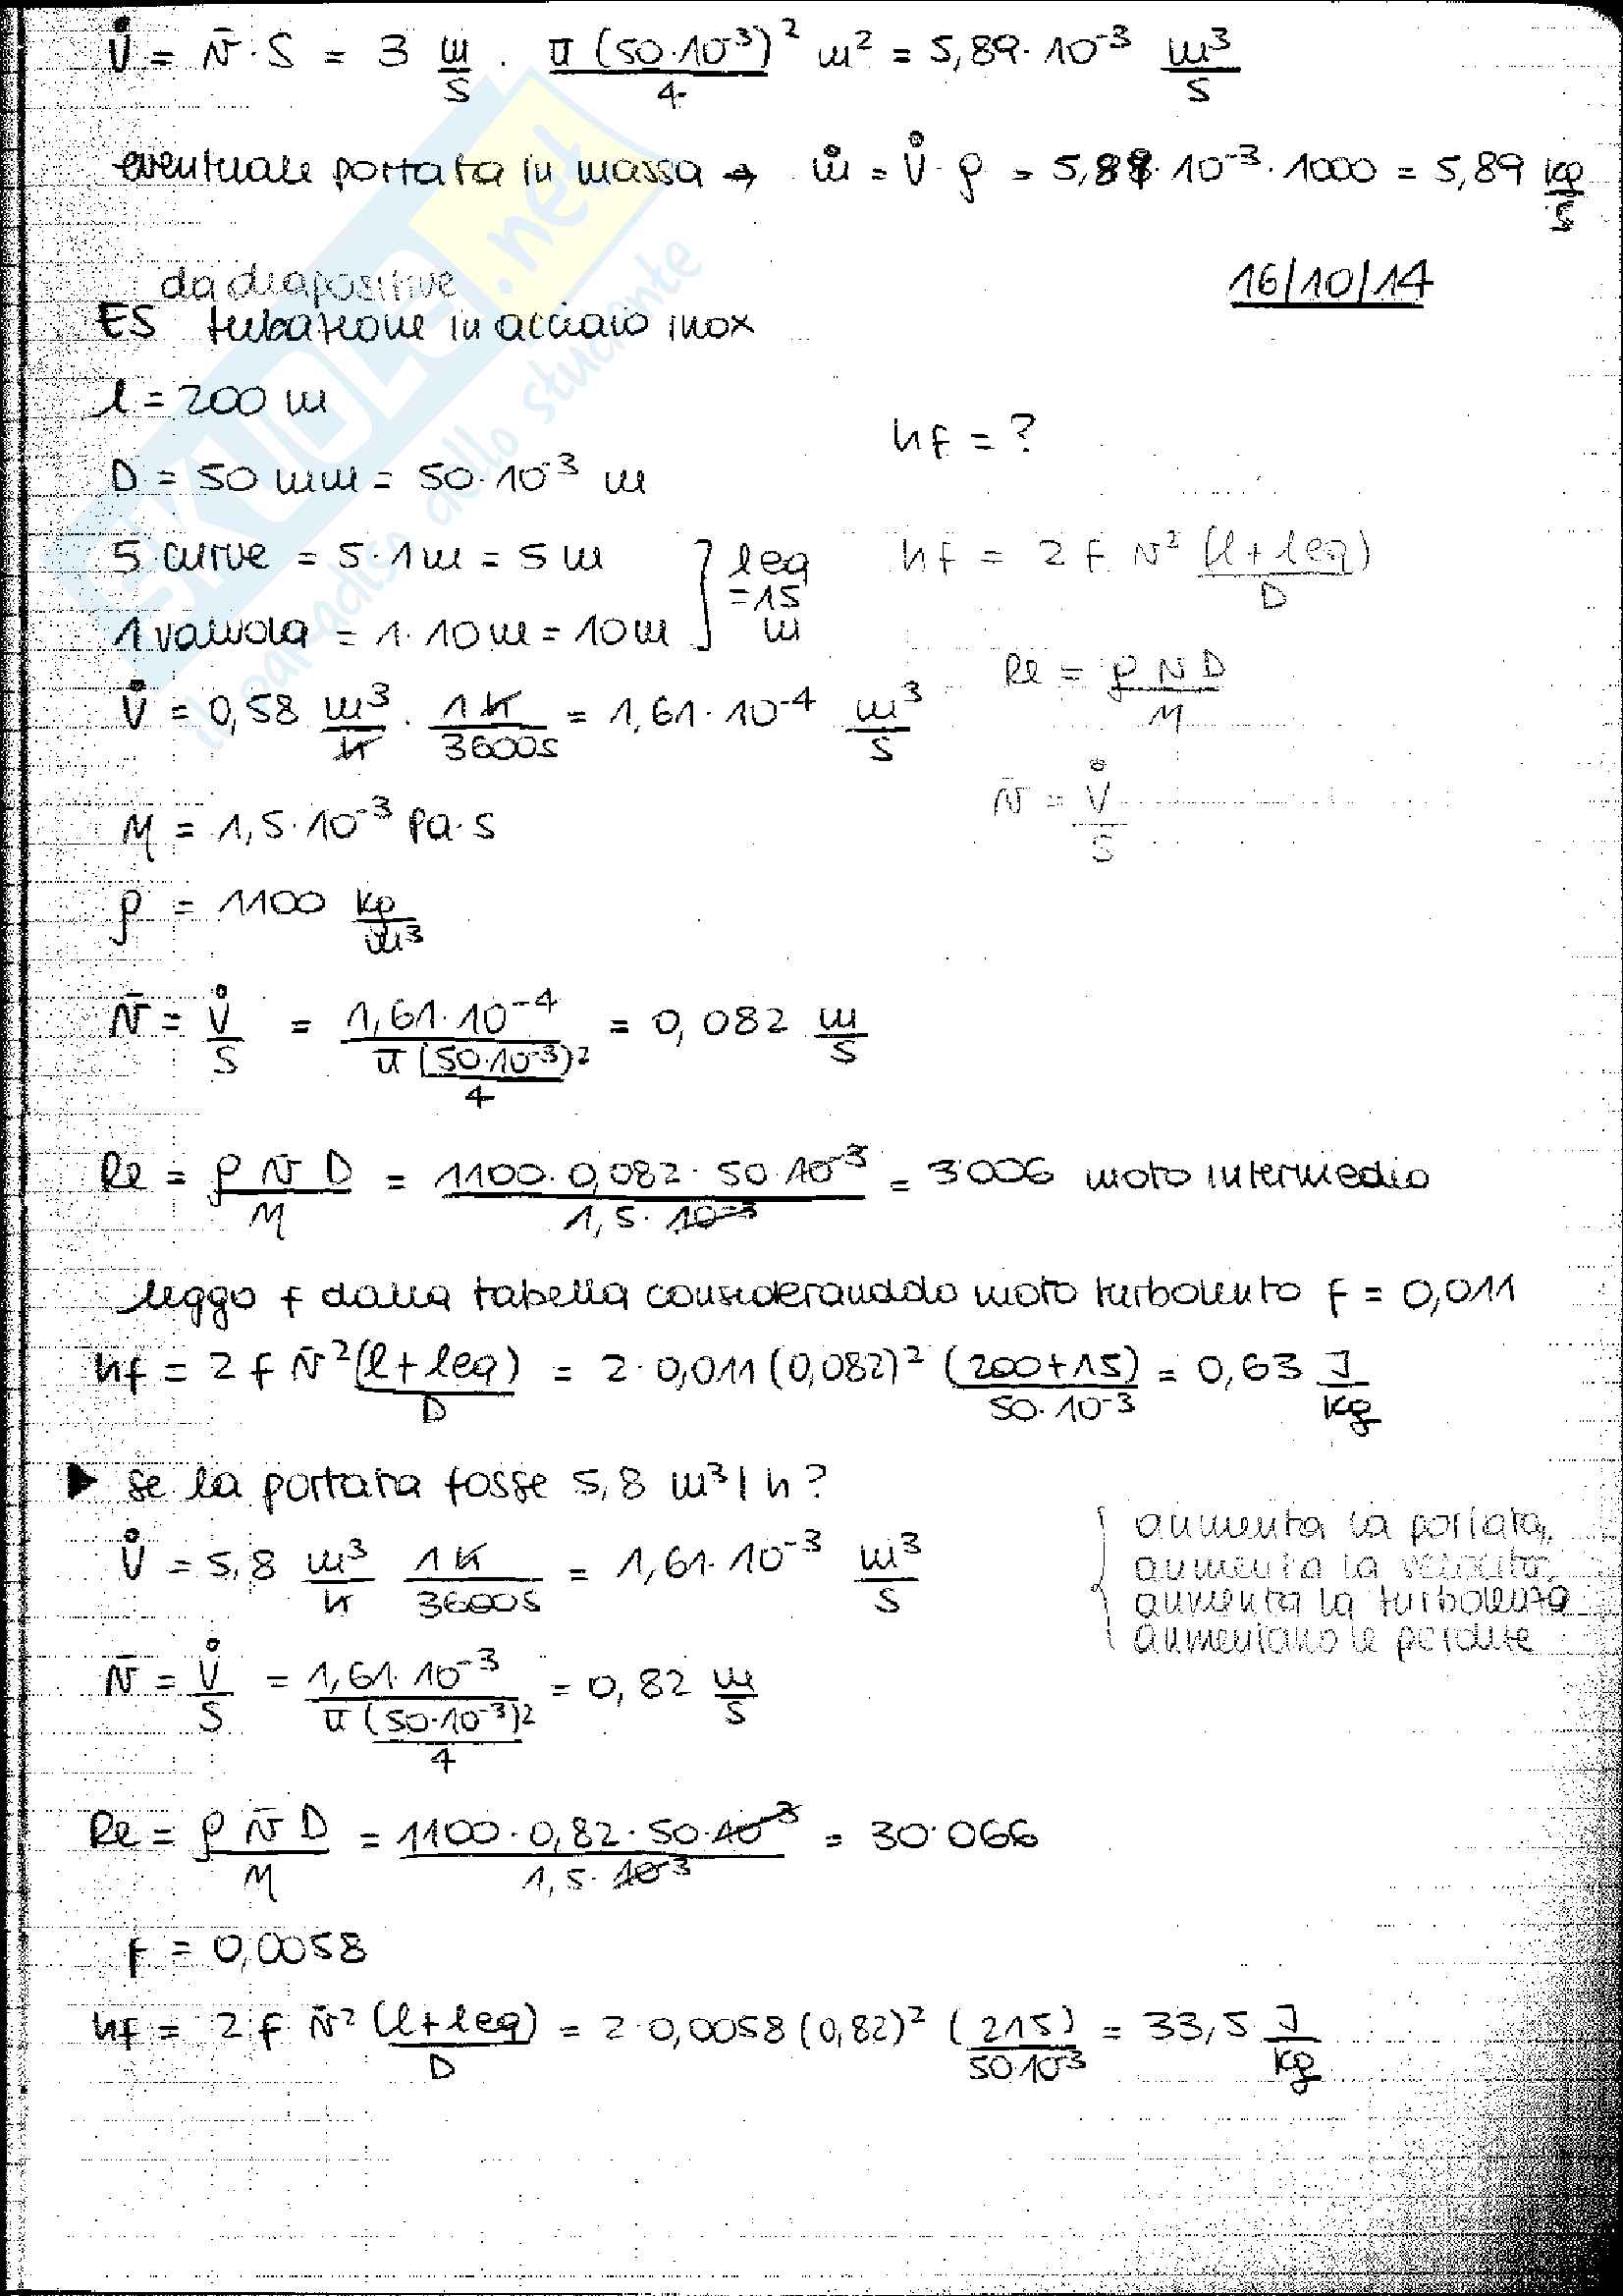 V̊ = v̄ · S = 3 m/s · π (50·10⁻³)²/4 m² = 5,89 · 10⁻³ m³/s
eventuale portata in massa → m̊ = V̊ · ρ = 5,89 · 10⁻³ · 1000 = 5,89 kg/s
16/10/14
da diapositive
ES tubazione in acciaio inox
l = 200 m
hf = ?
D = 50 mm = 50·10⁻³ m
5 curve = 5·1m = 5 m
1 valvola = 1·10m = 10m
] leq = 15 m
hf = 2 f v̄² (l+leq)/D
Re = ρ v̄ D/μ
V̊ = 0,58 m³/h · 1h/3600s = 1,61·10⁻⁴ m³/s
v̄ = V̊/S
μ = 1,5·10⁻³ Pa·s
ρ = 1100 kg/m³
v̄ = V̊/S = 1,61·10⁻⁴/π(50·10⁻³)²/4 = 0,082 m/s
Re = ρ v̄ D/μ = 1100·0,082·50·10⁻³/1,5·10⁻³ = 3006 moto intermedio
leggo f dalla tabella consideranddo moto turbolento f = 0,011
hf = 2 f v̄² (l+leq)/D = 2·0,011 (0,082)² (200+15)/50·10⁻³ = 0,63 J/kg
▶ se la portata fosse 5,8 m³/h?
V̊ = 5,8 m³/h 1h/3600s = 1,61·10⁻³ m³/s
{ aumenta la portata,
aumenta la velocità,
aumenta la turbolenza
aumentano le perdite
v̄ = V̊/S = 1,61·10⁻³/π(50·10⁻³)²/4 = 0,82 m/s
Re = ρ v̄ D/μ = 1100·0,82·50·10⁻³/1,5·10⁻³ = 30·066
f = 0,0058
hf = 2 f v̄² (l+leq)/D = 2·0,0058 (0,82)² (215)/50·10⁻³ = 33,5 J/kg
SKUOLA.net
il paradiso dello studente